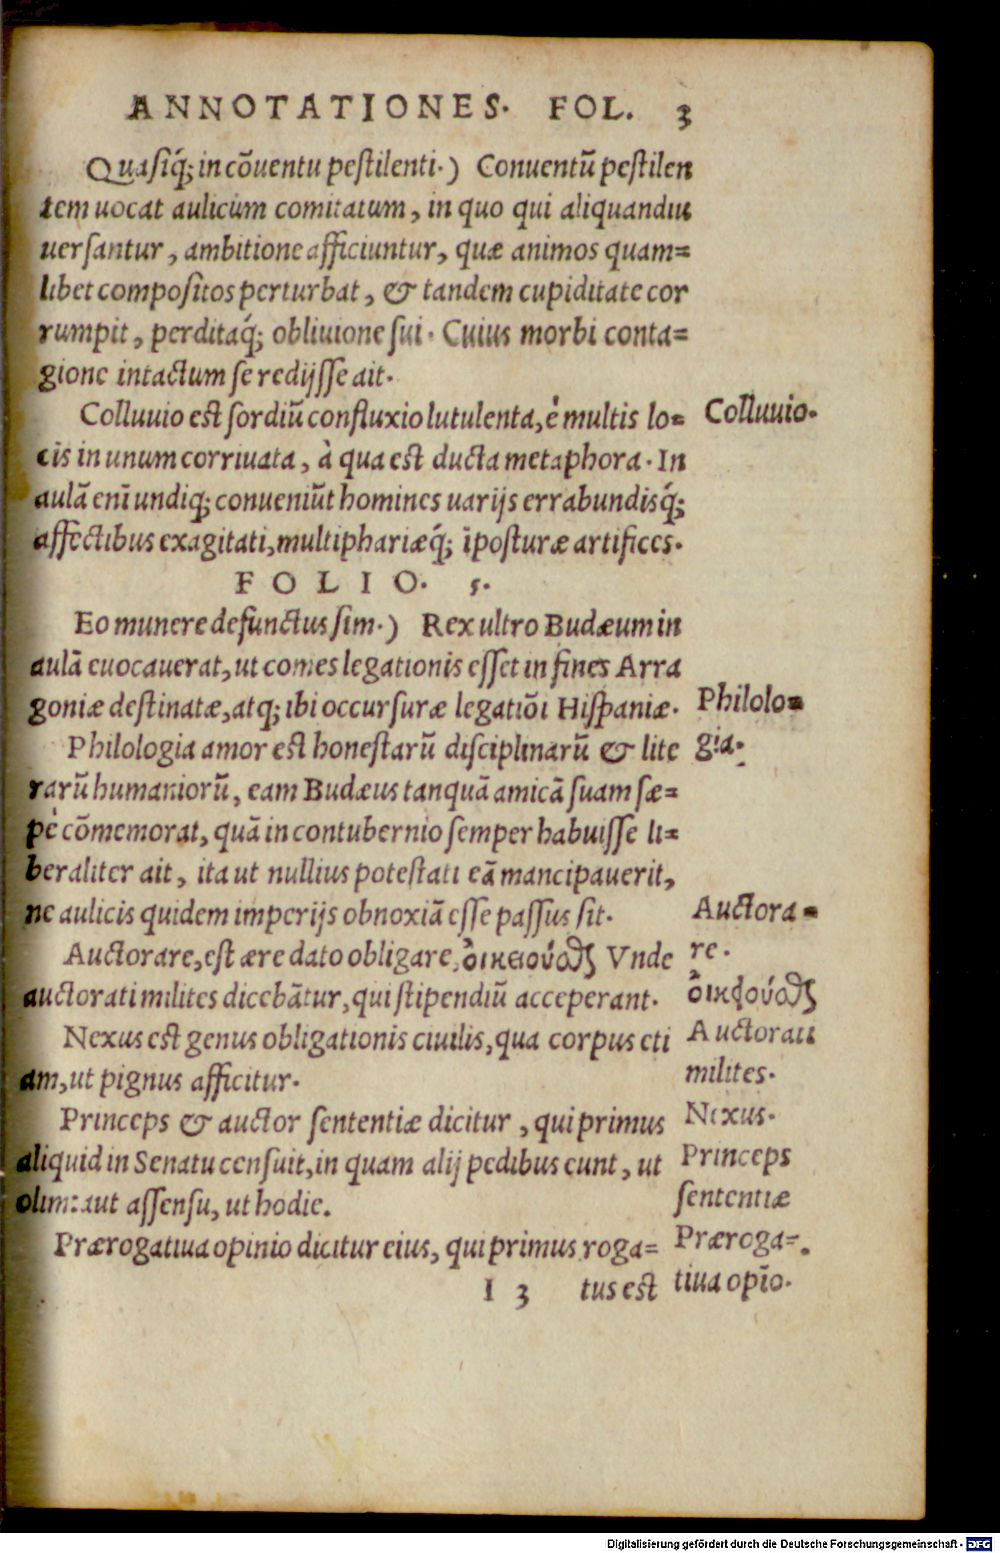 ANNOTATIONES. FOL. 3
Quasiq́; in cōuentu pestilenti.) Conuentū pestilen
tem uocat aulicum comitatum, in quo qui aliquandiu
uersantur, ambitione afficiuntur, quæ animos quam=
libet compositos perturbat, & tandem cupiditate cor
rumpit, perditaq́; obliuione sui. Cuius morbi conta=
gione intactum se redijsse ait.
Colluuio est sordiū confluxio lutulenta, è multis lo=
cis in unum corriuata, à qua est ducta metaphora. In
aulā enī undiq; conueniūt homines uarijs errabundisq́;
affectibus exagitati, multiphariæq́; īposturæ artifices.
Colluuio.
FOLIO. 5.
Eo munere defunctus sim.) Rex ultro Budæum in
aulā euocauerat, ut comes legationis esset in fines Arra
goniæ destinatæ, atq; ibi occursuræ legatiōi Hispaniæ.
Philologia amor est honestarū disciplinarū & lite
rarū humaniorū, eam Budæus tanquā amicā suam sæ=
pè cōmemorat, quā in contubernio semper habuisse li=
beraliter ait, ita ut nullius potestati eā mancipauerit,
ne aulicis quidem imperijs obnoxiā esse passus sit.
Philolo=
gia.
Auctorare, est ære dato obligare, οἰκειοῦσθαι Vnde
auctorati milites dicebātur, qui stipendiū acceperant.
Auctora=
re.
οἰκειοῦσθαι
Auctorati
milites.
Nexus est genus obligationis ciuilis, qua corpus eti
am, ut pignus afficitur.
Nexus.
Princeps & auctor sententiæ dicitur, qui primus
aliquid in Senatu censuit, in quam alij pedibus eunt, ut
olim: aut assensu, ut hodie.
Princeps
sententiæ
Prærogatiua opinio dicitur eius, qui primus roga=
Præroga=
tiua opīo.
I 3 tus est
Digitalisierung gefördert durch die Deutsche Forschungsgemeinschaft - DFG